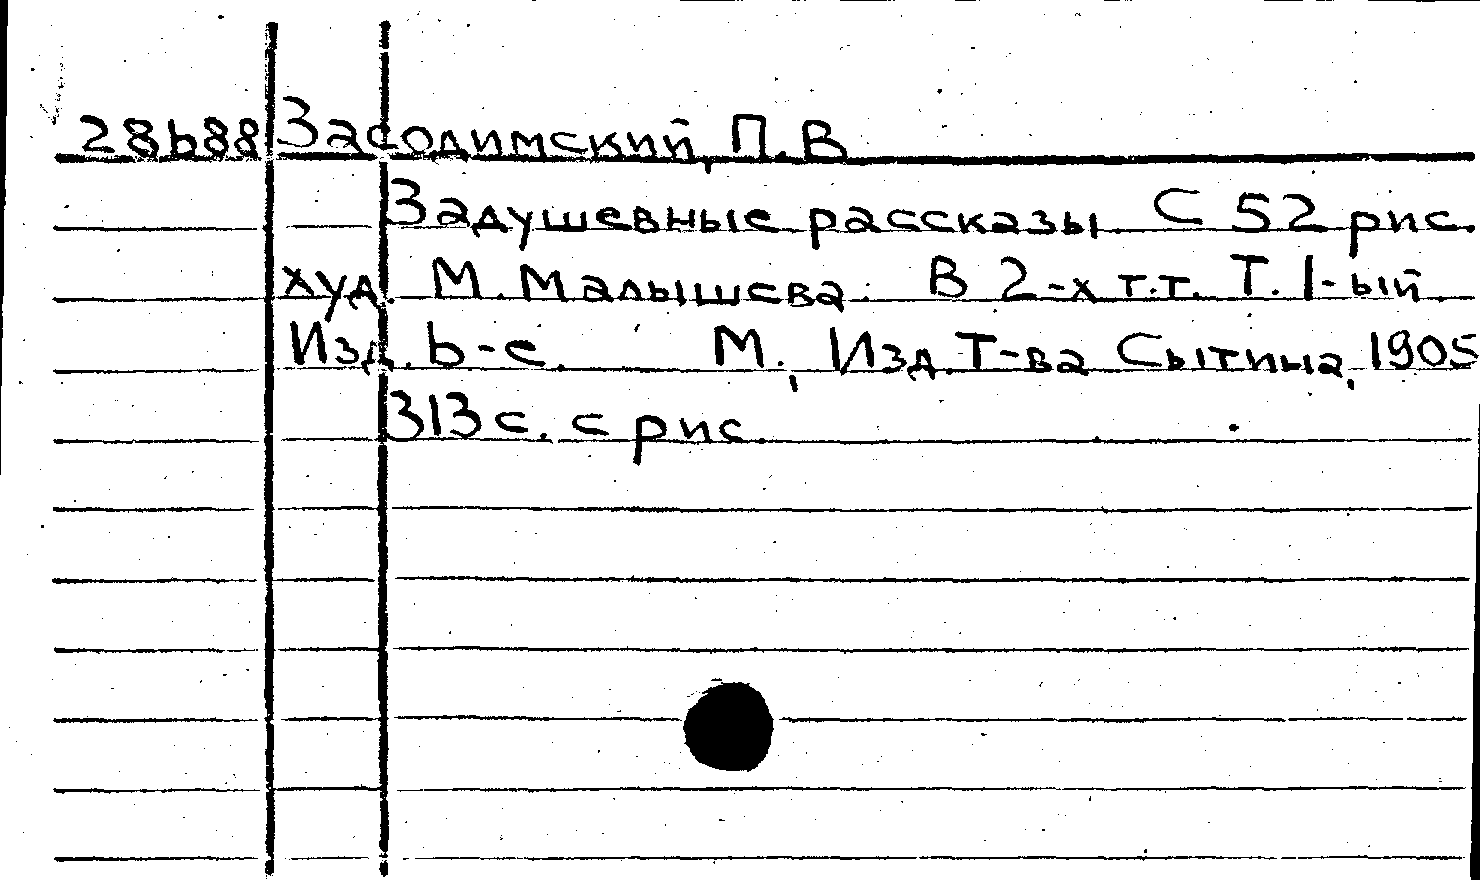 28688 Засодимский, П. В
Задушевные рассказы. С 52 рис.
худ. М. Малышева. В 2-х т.т. Т. 1-ый.
Изд. 6-е. М., Изд. Т-ва Сытина, 1905
313 с. с рис.